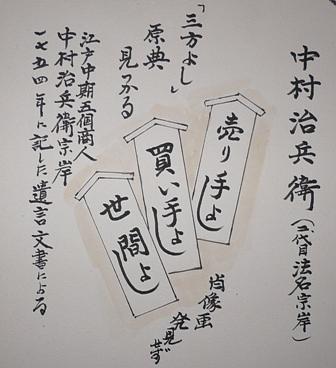 中村治兵衛(二代目法名宗岸)
「三方よし」
原典
見つかる
売り手よし
買い手よし
世間よし
江戸中期五個商人
中村治兵衛宗岸
一七五四年に記した遺言文書による
肖像画
発見せず